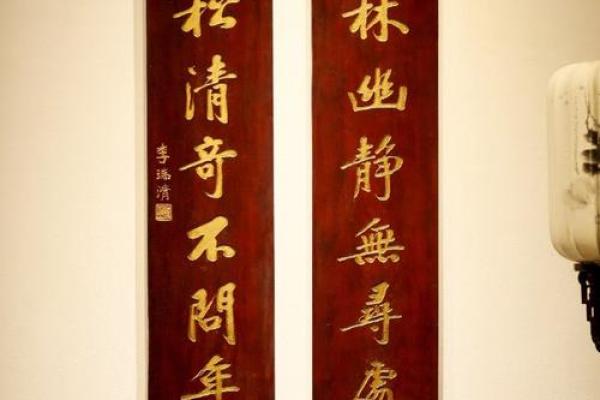 林幽靜無尋處
松清奇不問年
李瑞清